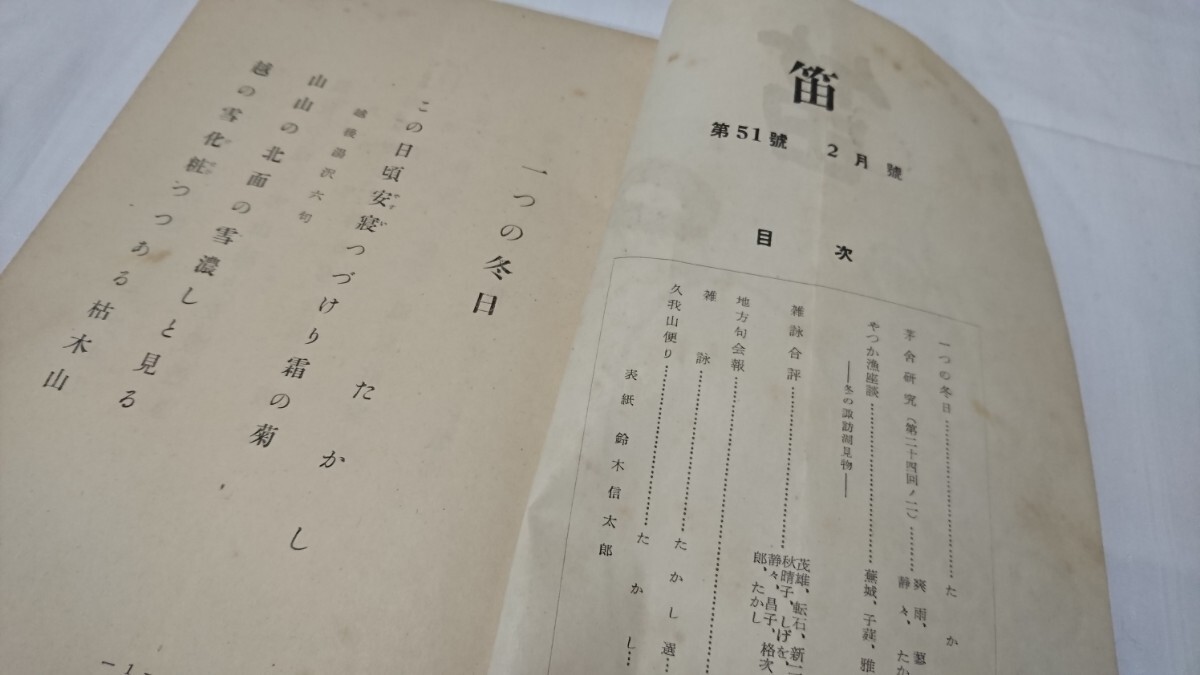 笛
第51號 2月號
目次
一つの冬日……たか
茅舎研究(第二十四回ノ二)……爽雨、静々、たか
やつか漁座談……蕪城、子瀧、雅
――冬の諏訪湖見物――
雑詠合評……茂雄、転石、新二
秋晴子、しげを、
静々、昌子、格次
郎、たかし
地方句会報
雑詠……たかし選
久我山便り……たかし
表紙 鈴木信太郎
一つの冬日
たかし
この日頃安寝つづけり霜の菊
越後湯沢六句
山山の北面の雪濃しと見る
越の雪化粧つつある枯木山